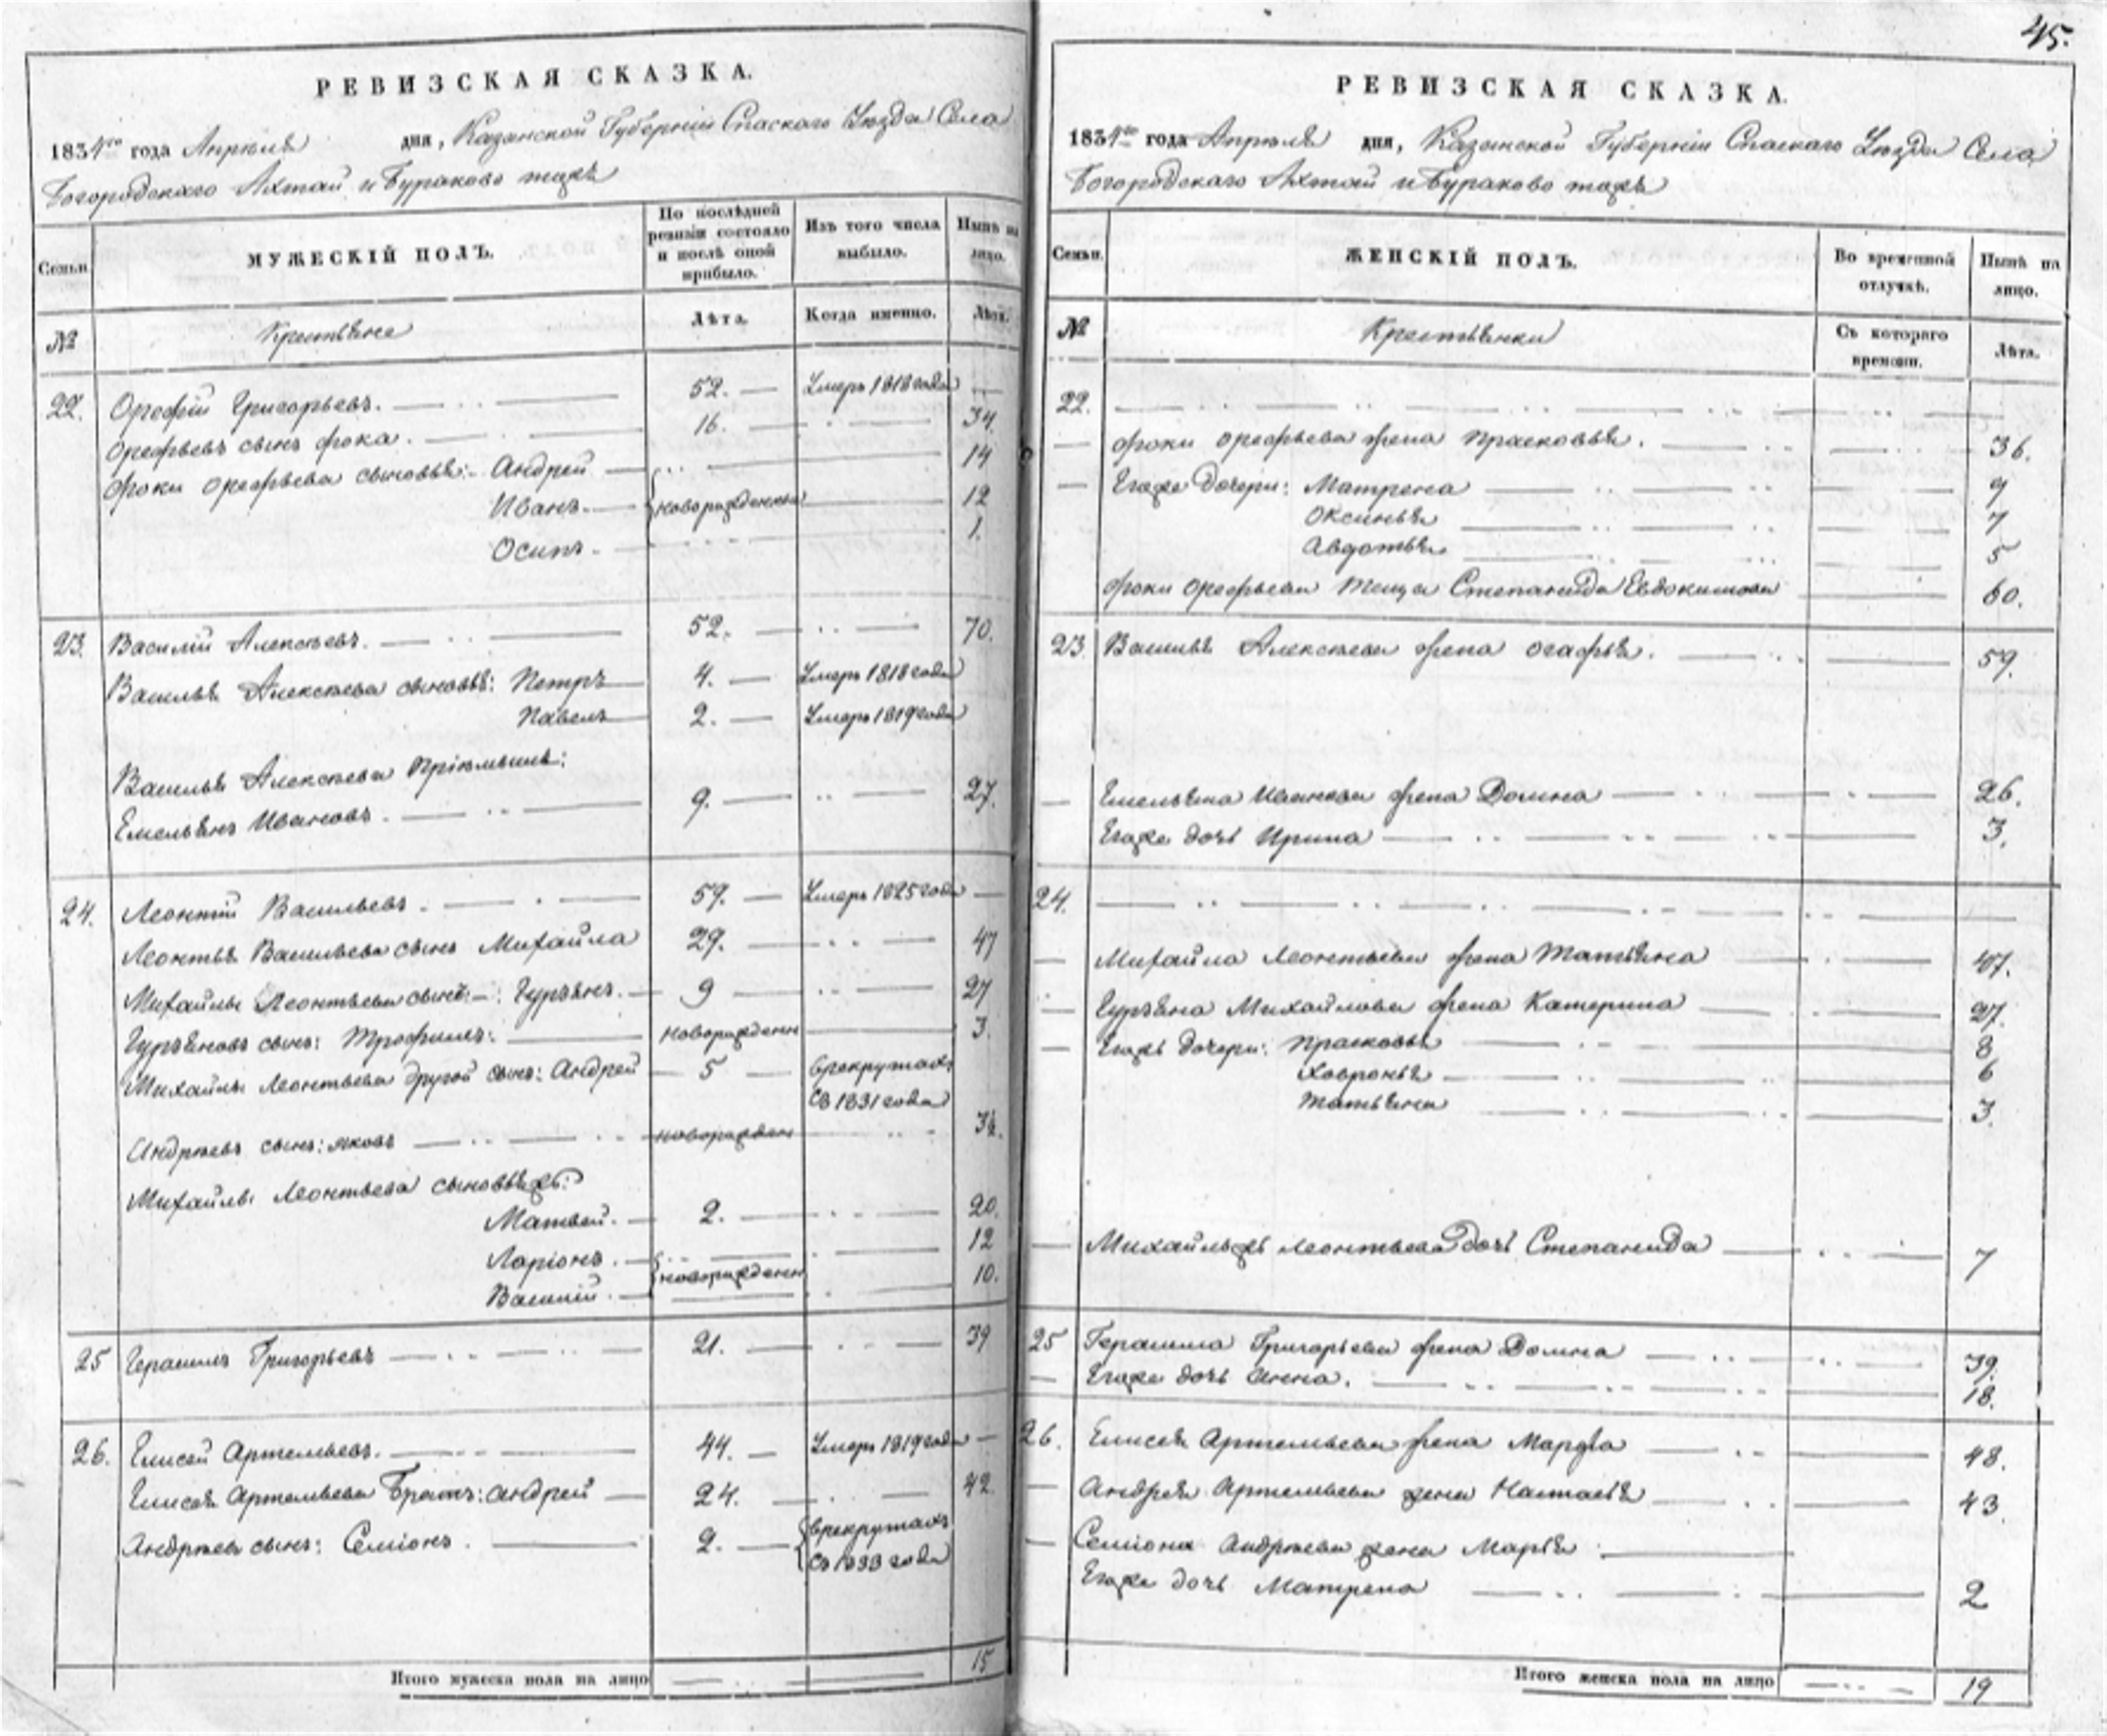 РЕВИЗСКАЯ СКАЗКА.
1834го года Апреля дня, Казанской Губернiи Спаскаго Уѣзда Села
Богородскаго Ахтай и Бураково тожъ
Семьи. МУЖЕСКIЙ ПОЛЪ. По послѣдней ревизiи состояло и послѣ оной прибыло. Изъ того числа выбыло. Нынѣ на лицо.
№ Крестьяне Лѣта. Когда именно. Лѣта.
22. Орефiй Григорьевъ. 52. Умеръ 1818 года
Орефьевъ сынъ Фока. 16. 34.
Фоки Орефьева сыновья: Андрей 14
Иванъ. новорожденны 12
Осипъ. 1.
23. Василiй Алексѣевъ. 52. 70.
Василья Алексѣева сыновья: Петръ 4. Умеръ 1818 года
Павелъ 2. Умеръ 1819 года
Василья Алексѣева прiемышъ:
Емельянъ Ивановъ. 9. 27.
24. Леонтiй Васильевъ. 59. Умеръ 1825 года
Леонтья Васильева сынъ Михайла 29. 47
Михайлы Леонтьева сынъ: Гурьянъ. 9 27
Гурьяновъ сынъ: Трофимъ: новорожденн 3.
Михайлы Леонтьева другой сынъ: Андрей 5 в рекрутахъ
съ 1831 года
Андрѣевъ сынъ: Яковъ новорожден
Михайлы Леонтьева сыновья жъ:
Матвей. 2. 20.
Ларiонъ. 12
Василiй. новорожденн 10.
25 Герасимъ Григорьевъ 21. 39
26. Елисей Артемьевъ. 44. Умеръ 1819 года
Елисея Артемьева братъ: Андрей 24. 42.
Андрѣев сынъ: Семiонъ. 2. в рекрутахъ
съ 1833 года
Итого мужеска пола на лицо 15
45.
РЕВИЗСКАЯ СКАЗКА.
1834го года Апреля дня, Казанской Губернiи Спаскаго Уѣзда Села
Богородскаго Ахтай и Бураково тожъ
Семьи. ЖЕНСКIЙ ПОЛЪ. Во временной отлучкѣ. Нынѣ на лицо.
№ Крестьянки Съ котораго времени. Лѣта.
22.
Фоки Орефьева жена Прасковья. 36.
Егоже дочери: Матрена 9
Оксинья 7
Авдотья 5
Фоки Орефьева теща Степанида Евдокимова 60.
23. Василья Алексѣева жена Огафья. 59.
Емельяна Иванова жена Домна 26.
Егоже дочь Ирина 3.
24.
Михайла Леонтьева жена Татьяна 47.
Гурьяна Михайлова жена Катерина 27.
Егожъ дочери: Прасковья 8
Ховронья 6
Татьяна 3.
Михайлы жъ Леонтьева дочь Степанида 7
25 Герасима Григорьева жена Домна 39.
Егоже дочь Анна. 18.
26. Елисея Артемьева жена Марфа 48.
Андрея Артемьева жена Настасья 43.
Семiона Андрѣева жена Марья
Егоже дочь Матрена 2
Итого женска пола на лицо 19